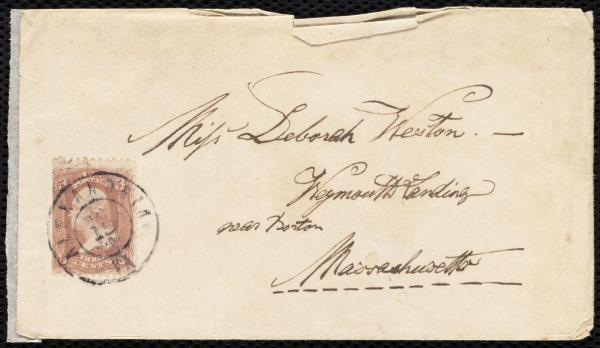 Miss Deborah Weston. —
Weymouth Landing
near Boston
Massachusetts
3 3
CENTS